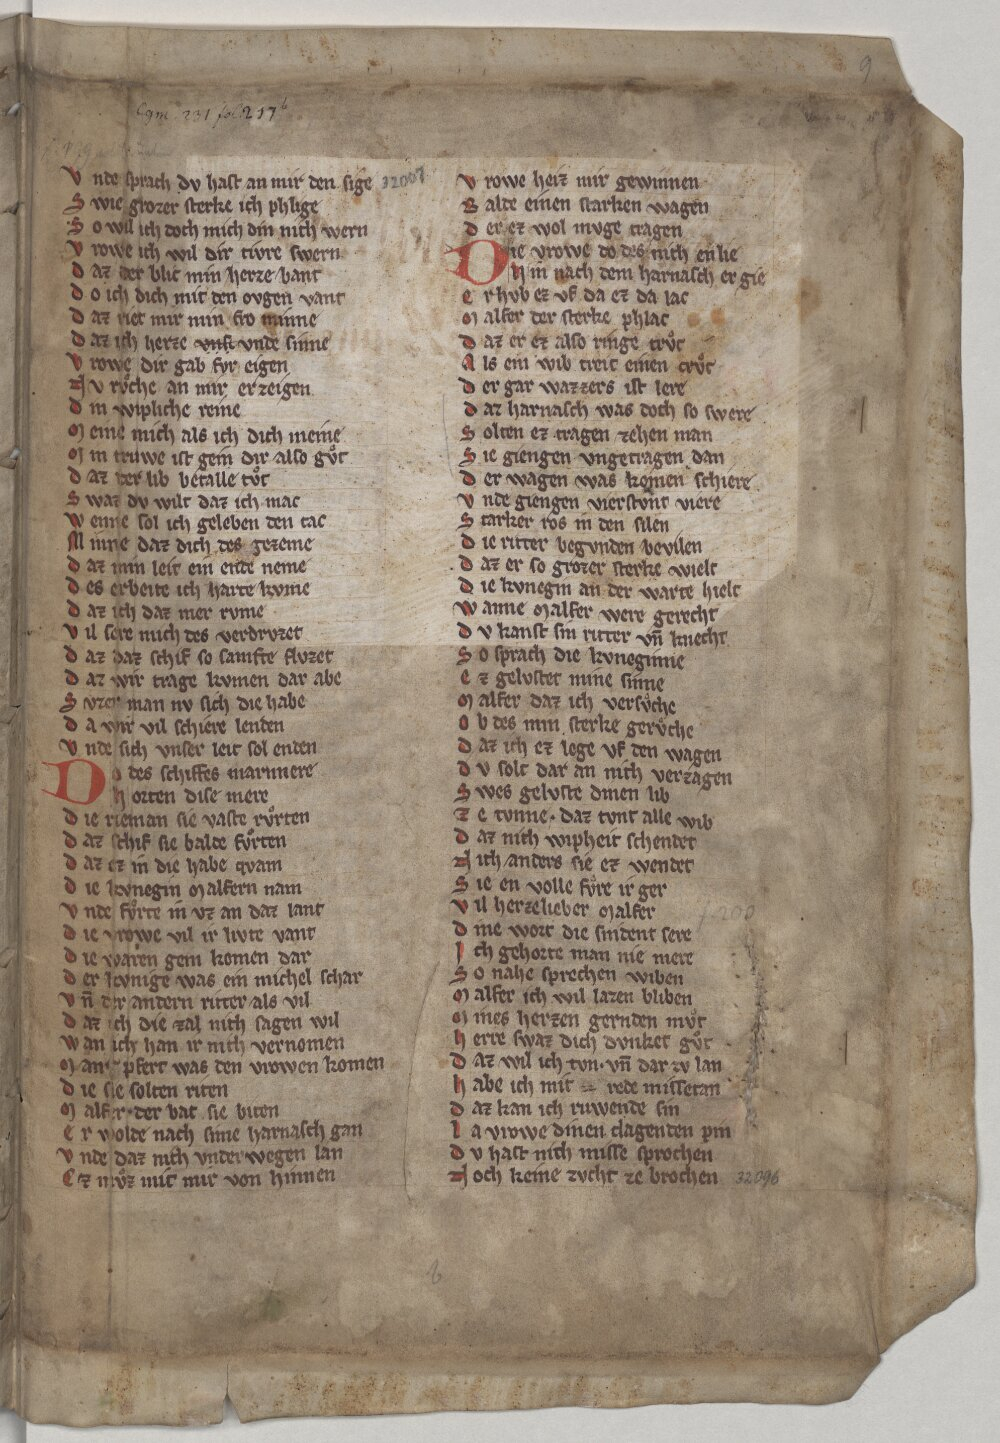 9
Cgm. 231 fol. 217b
V nde sprach dv hast an mir den sige 32007
S wie grozer sterke ich phlige
S o wil ich doch mich din nich wern
V rowe ich wil dir tivre swern
D az der blic min herze bant
D o ich dich mit den ovgen vant
D az riet mir min fro minne
D az ich herze vnde sinne
V rowe dir gab fvr eigen
N v rvͦche an mir erzeigen
D in wipliche reine
M eine mich als ich dich meine
M in truwe ist gein dir also gvͦt
D az der lib betalle tvͦt
S waz dv wilt daz ich mac
W enne sol ich geleben den tac
M inne daz dich des gezeme
D az min leit ein ende neme
D es erbeite ich harte kvme
D az ich daz mer rvme
V il sere mich des verdrvzet
D az daz schif so samfte flvzet
D az wir trage kvmen dar abe
S vzer man nv sich die habe
D a wir vil schiere lenden
V nde sich vnser leit sol enden
D o des schiffes marinere
h orten dise mere
D ie rieman sie vaste rvͦrten
D az schif sie balde fvͦrten
D az ez in die habe quam
D ie kvnegin Malfern nam
V nde fvͦrte in vz an daz lant
D ie vrowe vil ir livte vant
D ie waren gein komen dar
D er kvnige was ein michel schar
V n̄ der andern ritter als vil
D az ich die zal nich sagen wil
W an ich han ir nich vernomen
M anc pfert was den vrowen komen
D ie sie solten riten
M alfer der bat sie biten
E r wolde nach sime harnasch gan
V nde daz nich vnderwegen lan
E z mvͦz mit mir von hinnen
V rowe heiz mir gewinnen
B alde einen starken wagen
D er ez wol mvge tragen
D ie vrowe do des nich enlie
h in nach dem harnasch er gie
E r hvb ez vf da ez da lac
M alfer der sterke phlac
D az er ez also ringe trvͦc
A ls ein wib treit einen crvͦc
D er gar wazzers ist lere
D az harnasch was doch so swere
S olten ez tragen zehen man
S ie giengen vngetragen dan
D er wagen was komen schiere
V nde giengen vierstvnt viere
S tarker ros in den silen
D ie ritter begvnden bevilen
D az er so grozer sterke wielt
D ie kvnegin an der warte hielt
W anne Malfer were gerecht
D v kanst sin ritter vn̄ knecht
S o sprach die kvneginne
E z gelvstet mine sinne
M alfer daz ich versvͦche
O b des min sterke gervͦche
D az ich ez lege vf den wagen
D v solt dar an nich verzagen
S wes gelvste dinen lib
Z e tvnne. daz tvnt alle wib
D az nich wipheit schendet
N ich anders sie ez wendet
S ie en volle fvͦre ir ger
V il herzelieber Malfer
D ine wort die sindent sere
I ch gehorte man nie mere
S o nahe sprechen wiben
M alfer ich wil lazen bliben
M ines herzen gernden mvͦt
h erre swaz dich dvnket gvͦt
D az wil ich tvn. vn̄ dar zv lan
h abe ich mit rede missetan
D az kan ich ruwende sin
I a vrowe dinen clagenden pin
D v hast nich misse sprochen
N och keine zvcht ze brochen 32096